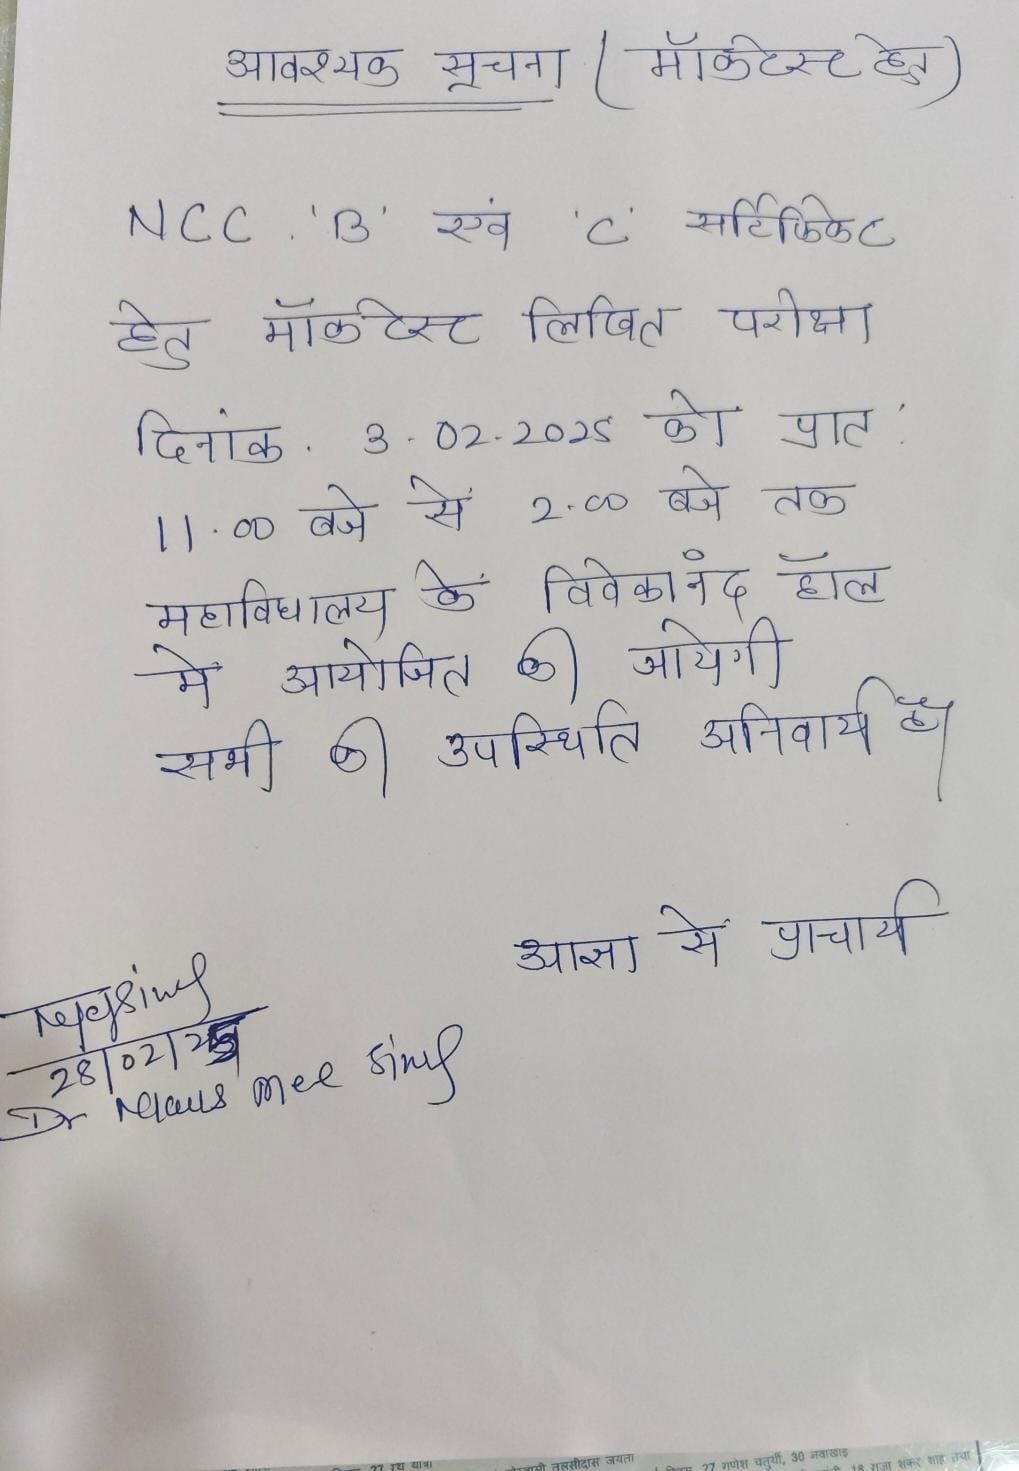 आवश्यक सूचना (मॉकटेस्ट हेतु)
NCC. 'B' एवं 'C' सर्टिफिकेट
हेतु मॉकटेस्ट लिखित परीक्षा
दिनांक. 3-02-2025 को प्रात:
11.00 बजे से 2.00 बजे तक
महाविद्यालय के विवेकानंद हॉल
मे आयोजित की जायेगी
सभी की उपस्थिति अनिवार्य है।
आज्ञा से प्राचार्य
28/02/25
Dr Singh
27 गणेश चतुर्थी, 30 नवाखाई